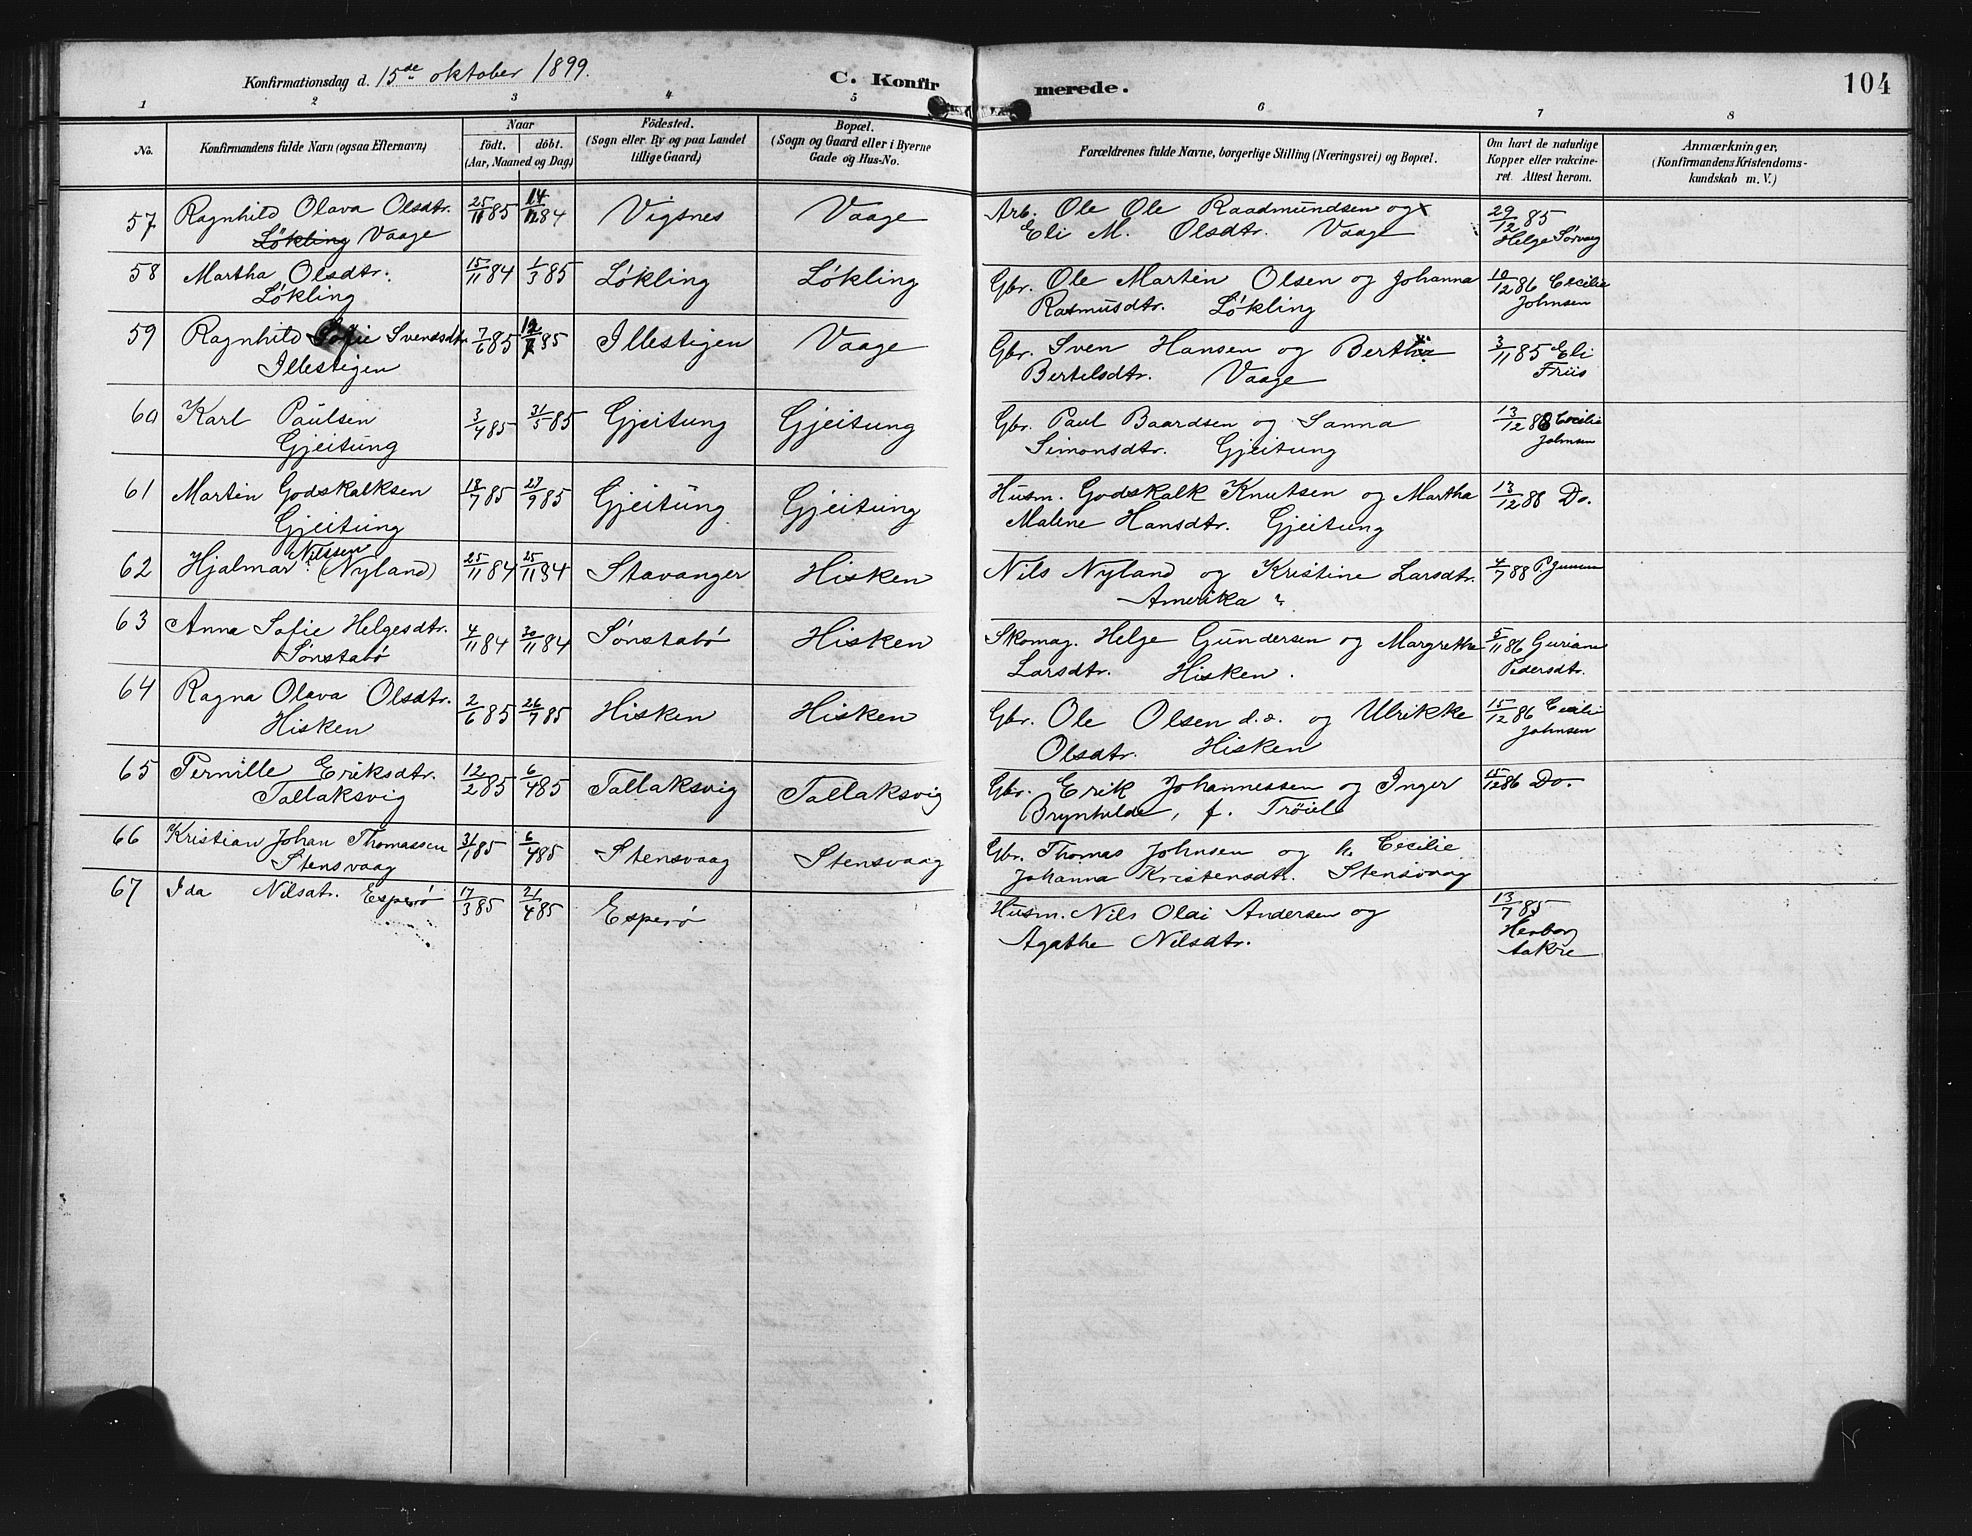 Konfirmationsdag d. 15de oktober 1899.
C. Konfirmerede.
104
1 2 3 4 5 6 7 8
No.
Konfirmandens fulde Navn (ogsaa Efternavn)
Naar
födt. döbt.
(Aar, Maaned og Dag)
Födested.
(Sogn eller By og paa Landet
tillige Gaard)
Bopæl.
(Sogn og Gaard eller i Byerne
Gade og Hus-No.
Forældrenes fulde Navne, borgerlige Stilling (Næringsvei) og Bopæl.
Om havt de naturlige
Kopper eller vakcine-
ret. Attest herom.
Anmærkninger.
(Konfirmandens Kristendoms-
kundskab m. V.)
57 Ragnhild Olava Olsdtr. 25/11 85 14/12 84 Vigsnes Vaage Arb. Ole Ole Raadmundsen og 29/12 85
Løkling Vaage Eli M. Olsdtr. Vaage Helge Sørvaag
58 Martha Olsdtr. 15/11 84 1/3 85 Løkling Løkling Gbr. Ole Martin Olsen og Johanna 10/12 86 Cecilie
Løkling Rasmusdtr. Løkling Johnsen
59 Ragnhild Sofie Svensdtr. 7/6 85 85 Illestigen Vaage Gbr. Sven Hansen og Bertha 3/11 85 Eli
Illestigen Bertelsdtr. Vaage Friis
60 Karl Paulsen 3/4 85 31/5 85 Gjeitung Gjeitung Gbr. Paul Baardsen og Sanna 13/12 88 Cecilie
Gjeitung Simonsdtr. Gjeitung Johnsen
61 Martin Godskalksen 18/7 85 27/9 85 Gjeitung Gjeitung Husm. Godskalk Knutsen og Martha 13/12 88 Do.
Gjeitung Malene Hansdtr. Gjeitung
Nilssen
62 Hjalmar (Nyland) 25/11 84 25/11 84 Stavanger Hisken Nils Nyland og Kristine Larsdtr. 4/7 88
Amerika ?
63 Anna Sofie Helgesdtr. 4/11 84 30/11 84 Sønstabø Hisken Skomag. Helge Gundersen og Margrethe 5/11 86 Guriane
Sønstabø Larsdtr. Hisken. Pedersdtr.
64 Ragna Olava Olsdtr. 2/6 85 26/7 85 Hisken Hisken Gbr. Ole Olsen d.e. og Ulrikke 15/12 86 Cecilie
Hisken Olsdtr. Hisken Johnsen
65 Pernille Eriksdtr. 12/2 85 6/4 85 Tallaksvig Tallaksvig Gbr. Erik Johannessen og Inger 15/12 86 Do.
Tallaksvig Brynhilde, f. Trøiel
66 Kristian Johan Thomassen 31/1 85 6/4 85 Stensvaag Stensvaag Gbr. Thomas Johnsen og h. Cecilie
Stensvaag Johanna Kristensdtr. Stensvaag
67 Ida Nilsdtr. Esperø 17/3 85 21/4 85 Esperø Husm. Nils Olai Andersen og 13/7 85
Agathe Nilsdtr. Herborg
Aakre